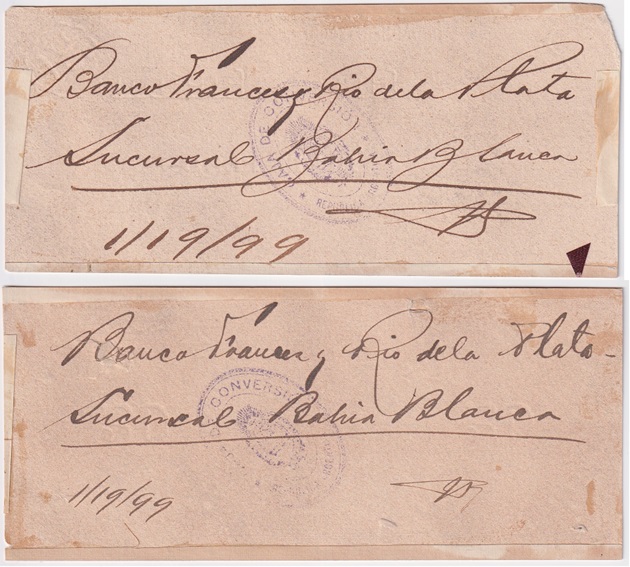 Banco Frances y Rio de la Plata
Sucursal Bahia Blanca
1/19/99
CAJA DE CONVERSION
REPUBLICA
Banco Frances y Rio de la Plata
Sucursal Bahia Blanca
1/19/99
CONVERSI